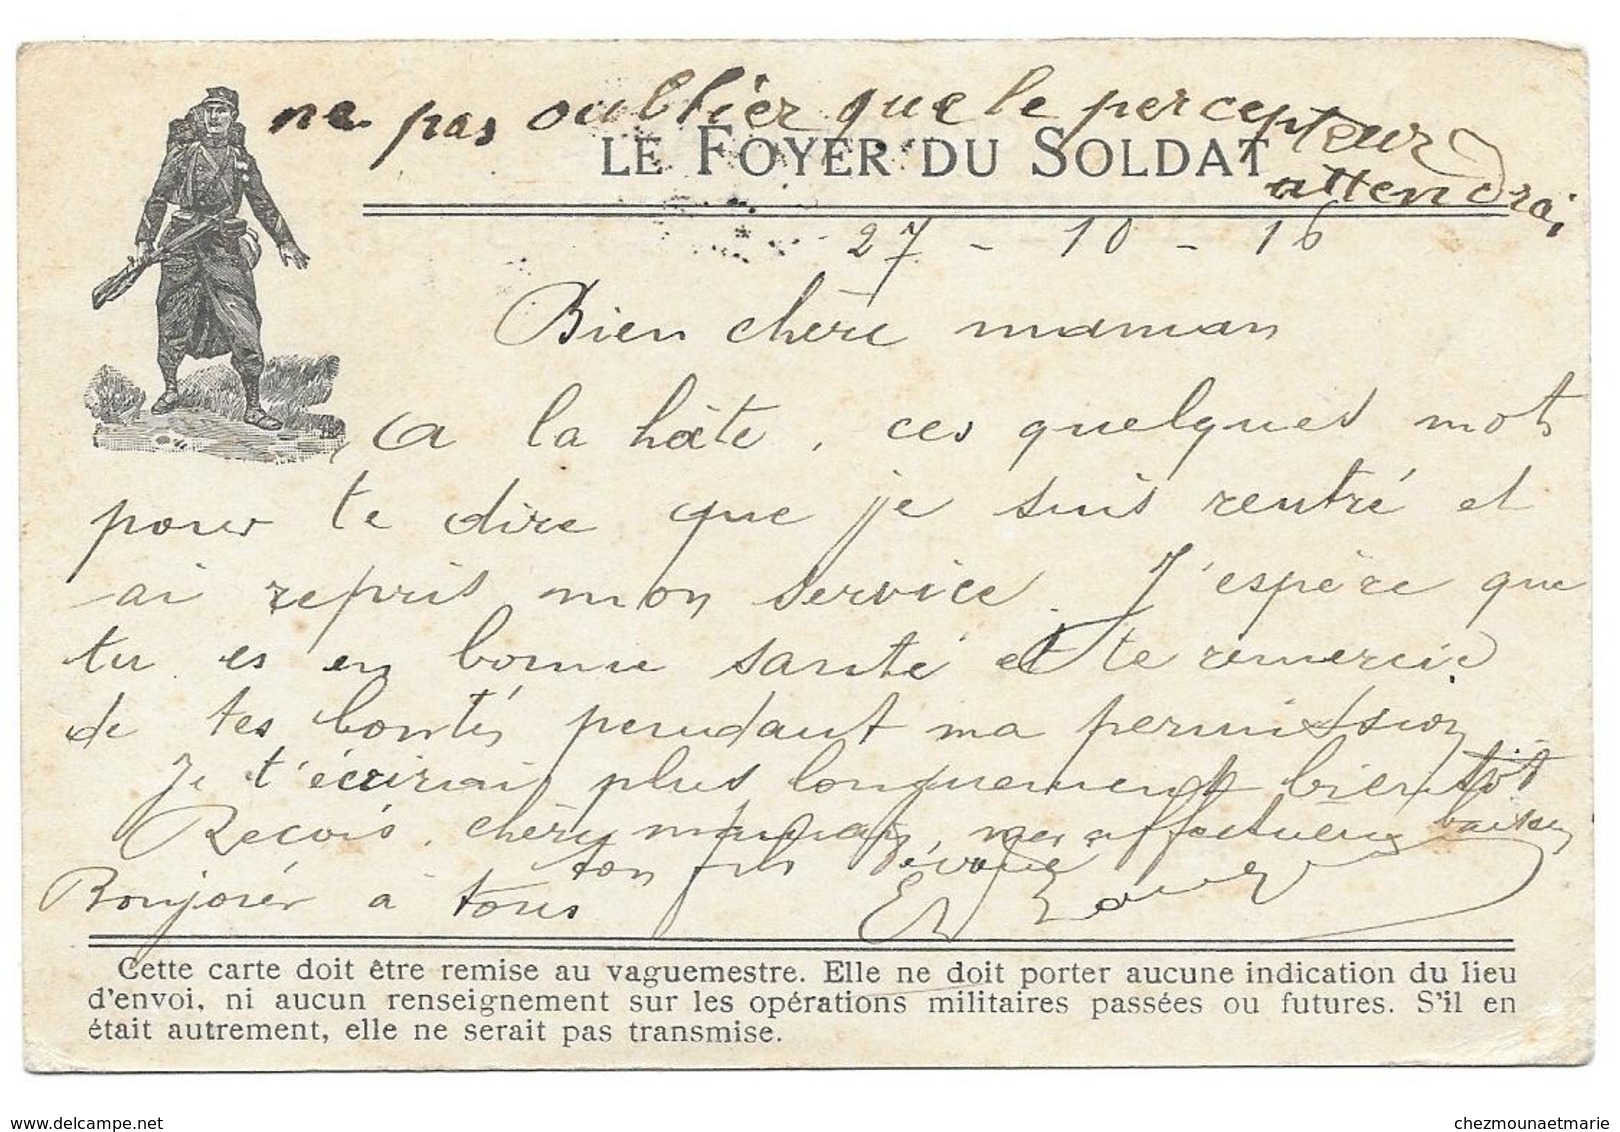 ne pas oublier que le percepteur
attendrai
LE FOYER DU SOLDAT
27 - 10 - 16
Bien chère maman
A la hâte, ces quelques mots
pour te dire que je suis rentré et
ai repris mon service. J'espère que
tu es en bonne santé et te remercie
de tes bontés pendant ma permission
Je t'écrirai plus longuement bientôt
Reçois, chère maman, mes affectueux baisers
ton fils dévoué
Bonjour à tous
Cette carte doit être remise au vaguemestre. Elle ne doit porter aucune indication du lieu
d'envoi, ni aucun renseignement sur les opérations militaires passées ou futures. S'il en
était autrement, elle ne serait pas transmise.
www.delcampe.net
chezmounaetmarie